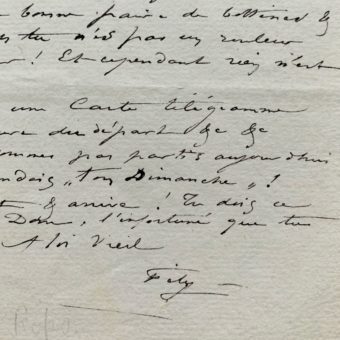 bonne paire de bottines &
tu n'es pas un rouleur
! Et cependant rien n'est
une Carte télégramme
du départ &c &c
sommes pas partis aujourd'hui
„ ton Dimanche „ !
& arrive ! Tu dois ce
Dom, l'infortuné que tu
A toi Vieil